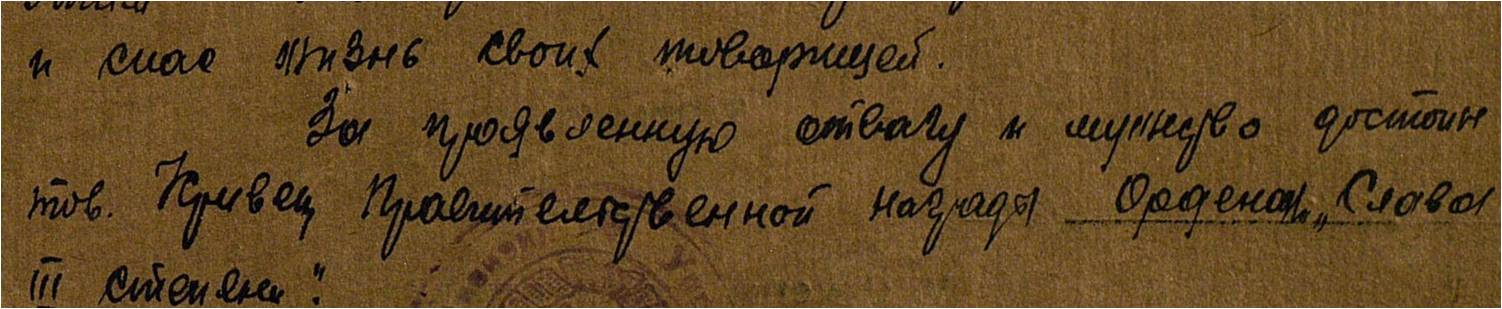 и спас жизнь своих товарищей.
За проявленную отвагу и мужество достоин
тов. Кривец Правительственной награды Ордена „Слава
III степени".